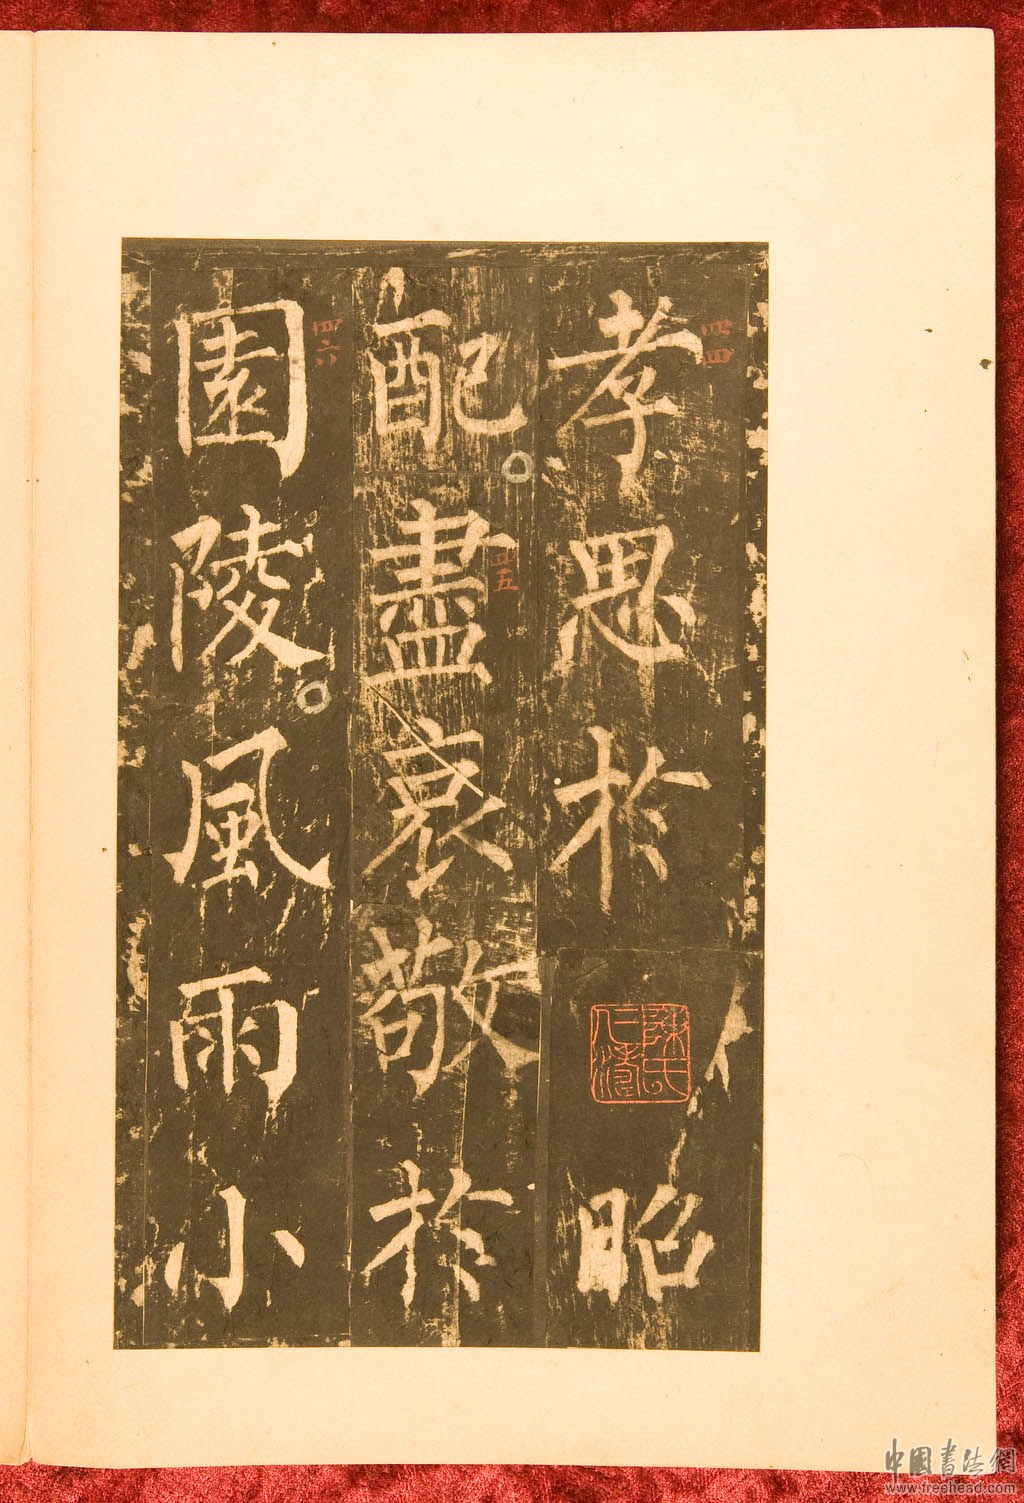 孝思於昭
配。盡哀敬於
園陵。風雨小
四四
四五
四六
陳氏
仁濤
中國書法網
www.freehead.com